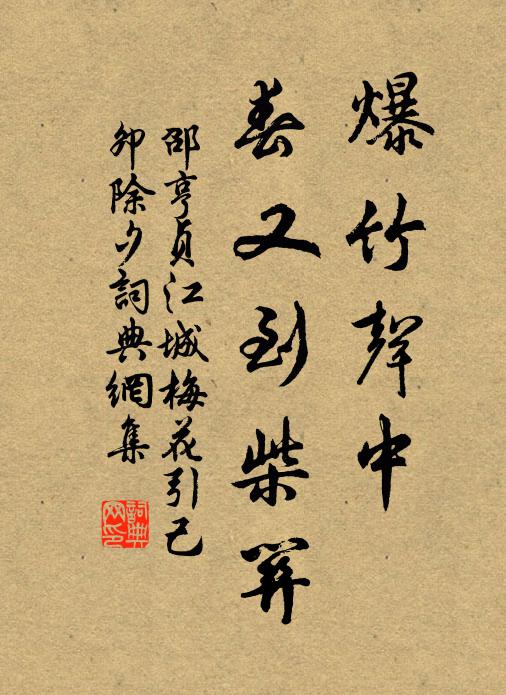 爆竹聲中
春又到柴關
邵亨貞江城梅花引己
卯除夕詞典網集
詞典
網印